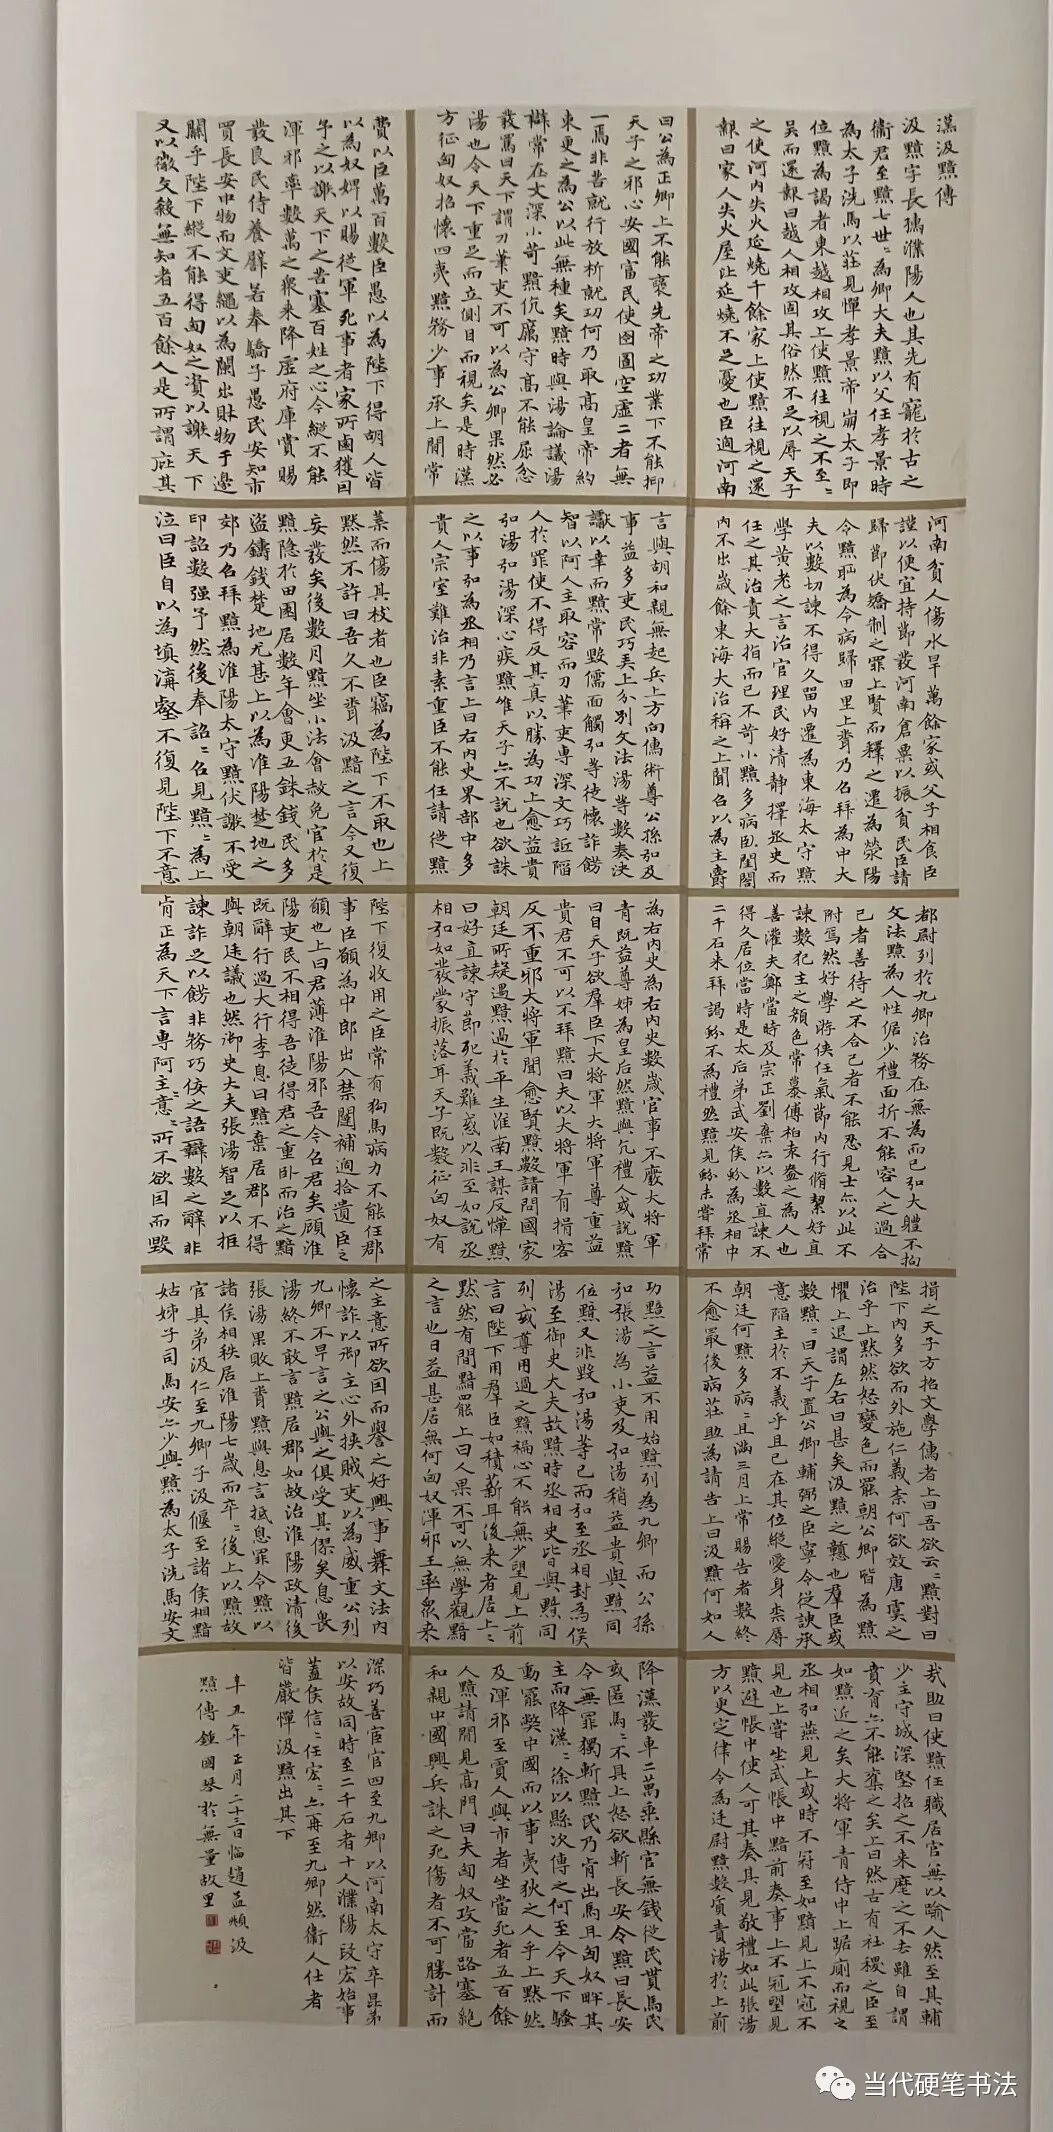 漢汲黯傳
汲黯字長孺濮陽人也其先有寵於古之
衛君至黯七世〻為卿大夫黯以父任孝景時
為太子洗馬以莊見憚孝景帝崩太子即
位黯為謁者東越相攻上使黯往視之不至〻
吳而還報曰越人相攻固其俗然不足以辱天子
之使河內失火延燒千餘家上使黯往視之還
報曰家人失火屋比延燒不足憂也臣過河南
河南貧人傷水旱萬餘家或父子相食臣
謹以便宜持節發河南倉粟以振貧民臣請
歸節伏矯制之罪上賢而釋之遷為滎陽
令黯恥為令病歸田里上聞乃召拜為中大
夫以數切諫不得久留內遷為東海太守黯
學黃老之言治官理民好清靜擇丞史而
任之其治責大指而已不苛小黯多病臥閨閤
內不出歲餘東海大治稱之上聞召以為主爵
都尉列於九卿治務在無為而已弘大體不拘
文法黯為人性倨少禮面折不能容人之過合
己者善待之不合己者不能忍見士亦以此不
附焉然好學游俠任氣節內行脩絜好直
諫數犯主之顏色常慕傅柏袁盎之為人也
善灌夫鄭當時及宗正劉棄亦以數直諫不
得久居位當時是太后弟武安侯蚡為丞相中
二千石來拜謁蚡不為禮然黯見蚡未嘗拜常
揖之天子方招文學儒者上曰吾欲云〻黯對曰
陛下內多欲而外施仁義柰何欲效唐虞之
治乎上默然怒變色而罷朝公卿皆為黯
懼上退謂左右曰甚矣汲黯之戇也羣臣或
數黯〻曰天子置公卿輔弼之臣寧令從諛承
意陷主於不義乎且已在其位縱愛身柰辱
朝廷何黯多病〻且滿三月上常賜告者數終
不愈最後病莊助為請告上曰汲黯何如人
哉助曰使黯任職居官無以踰人然至其輔
少主守城深堅招之不來麾之不去雖自謂
賁育亦不能奪之矣上曰然古有社稷之臣至
如黯近之矣大將軍青侍中上踞廁而視之
丞相弘燕見上或時不冠至如黯見上不冠不
見也上嘗坐武帳中黯前奏事上不冠望見
黯避帳中使人可其奏其見敬禮如此張湯
方以更定律令為廷尉黯數質責湯於上前
曰公為正卿上不能褒先帝之功業下不能抑
天子之邪心安國富民使囹圄空虛二者無
一焉非苦就行放析就功何乃取高皇帝約
束更之為公以此無種矣黯時與湯論議湯
辯常在文深小苛黯伉厲守高不能屈忿
發罵曰天下謂刀筆吏不可以為公卿果然必
湯也令天下重足而立側目而視矣是時漢
方征匈奴招懷四夷黯務少事承上閒常
言與胡和親無起兵上方向儒術尊公孫弘及
事益多吏民巧弄上分別文法湯等數奏決
讞以幸而黯常毀儒面觸弘等徒懷詐飾
智以阿人主取容而刀筆吏專深文巧詆陷
人於罪使不得反其真以勝為功上愈益貴
弘湯弘湯深心疾黯唯天子亦不說也欲誅
之以事弘為丞相乃言上曰右內史界部中多
貴人宗室難治非素重臣不能任請徙黯
為右內史為右內史數歲官事不廢大將軍
青既益尊姊為皇后然黯與亢禮人或說黯
曰自天子欲羣臣下大將軍大將軍尊重益
貴君不可以不拜黯曰夫以大將軍有揖客
反不重邪大將軍聞愈賢黯數請問國家
朝廷所疑遇黯過於平生淮南王謀反憚黯
曰好直諫守節死義難惑以非至如說丞
相弘如發蒙振落耳天子既數征匈奴有
功黯之言益不用始黯列為九卿而公孫
弘張湯為小吏及弘湯稍益貴與黯同
位黯又非毀弘湯等已而弘至丞相封為侯
湯至御史大夫故黯時丞相史皆與黯同
列或尊用過之黯褊心不能無少望見上前
言曰陛下用羣臣如積薪耳後來者居上〻
默然有間黯罷上曰人果不可以無學觀黯
之言也日益甚居無何匈奴渾邪王率眾來
降漢發車二萬乘縣官無錢從民貰馬民
或匿馬〻不具上怒欲斬長安令黯曰長安
令無罪獨斬黯民乃肯出馬且匈奴畔其
主而降漢〻徐以縣次傳之何至令天下騷
動罷獘中國而以事夷狄之人乎上默然
及渾邪至賈人與市者坐當死者五百餘
人黯請閒見高門曰夫匈奴攻當路塞絕
和親中國興兵誅之死傷者不可勝計而
費以臣萬百數臣愚以為陛下得胡人皆
以為奴婢以賜從軍死事者家所鹵獲因
予之以謝天下之苦塞百姓之心今縱不能
渾邪率數萬之眾來降虛府庫賞賜
發良民侍養譬若奉驕子愚民安知市
買長安中物而文吏繩以為闌出財物于邊
關乎陛下縱不能得匈奴之資以謝天下
又以微文殺無知者五百餘人是所謂庇其
葉而傷其枝者也臣竊為陛下不取也上
默然不許曰吾久不聞汲黯之言今又復
妄發矣後數月黯坐小法會赦免官於是
黯隱於田園居數年會更五銖錢民多
盜鑄錢楚地尤甚上以為淮陽楚地之
郊乃召拜黯為淮陽太守黯伏謝不受
印詔數強予然後奉詔〻召見黯〻為上
泣曰臣自以為填溝壑不復見陛下不意
陛下復收用之臣常有狗馬病力不能任郡
事臣願為中郎出入禁闥補過拾遺臣之
願也上曰君薄淮陽邪吾今召君矣顧淮
陽吏民不相得吾徒得君之重臥而治之黯
既辭行過大行李息曰黯棄居郡不得
與朝廷議也然御史大夫張湯智足以拒
諫詐足以飾非務巧佞之語辯數之辭非
肯正為天下言專阿主意〻所不欲因而毀
之主意所欲因而譽之好興事舞文法內
懷詐以御主心外挾賊吏以為威重公列
九卿不早言之公與之俱受其僇矣息畏
湯終不敢言黯居郡如故治淮陽政清後
張湯果敗上聞黯與息言抵息罪令黯以
諸侯相秩居淮陽七歲而卒〻後上以黯故
官其弟汲仁至九卿子汲偃至諸侯相黯
姑姊子司馬安亦少與黯為太子洗馬安文
深巧善宦官四至九卿以河南太守卒昆弟
以安故同時至二千石者十人濮陽段宏始事
蓋侯信〻任宏〻亦再至九卿然衛人仕者
皆嚴憚汲黯出其下
辛丑年正月二十三日臨趙孟頫汲
黯傳鍾國琴於無量故里
当代硬笔书法